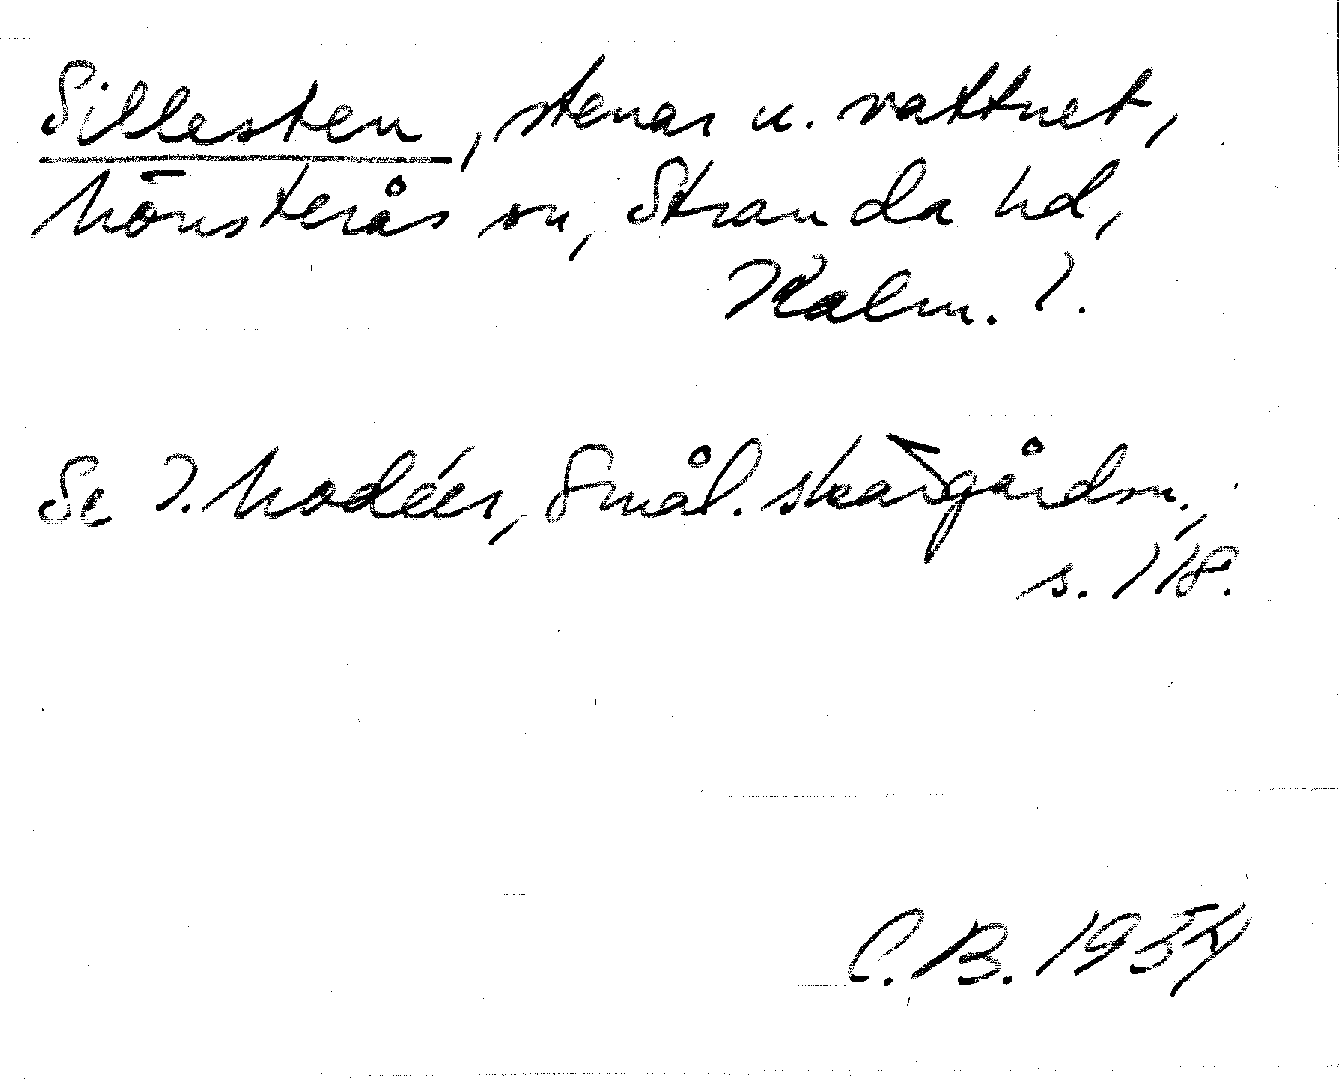 Sillesten, stenar u. vattnet,
Mönsterås sn, Stranda hd,
Kalm. l.
Se I. Modéer, Smål. skärgårdsn.,
s. 118.
C.B. 1954